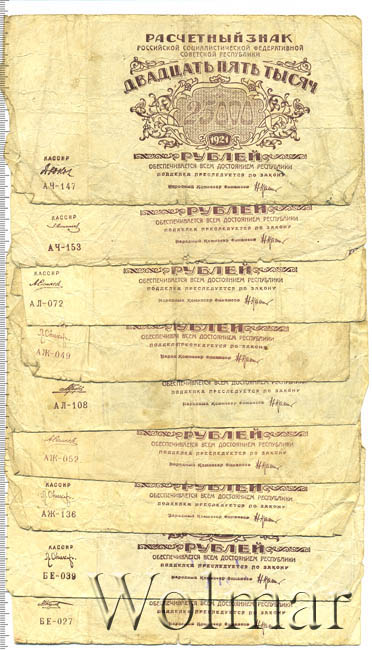 РАСЧЕТНЫЙ ЗНАК
РОССИЙСКОЙ СОЦИАЛИСТИЧЕСКОЙ ФЕДЕРАТИВНОЙ
СОВЕТСКОЙ РЕСПУБЛИКИ
ДВАДЦАТЬ ПЯТЬ ТЫСЯЧ
25000
1921
РУБЛЕЙ
ОБЕСПЕЧИВАЕТСЯ ВСЕМ ДОСТОЯНИЕМ РЕСПУБЛИКИ
ПОДДЕЛКА ПРЕСЛЕДУЕТСЯ ПО ЗАКОНУ
Народный Комиссар Финансов
КАССИР
АЧ-147
РУБЛЕЙ
ОБЕСПЕЧИВАЕТСЯ ВСЕМ ДОСТОЯНИЕМ РЕСПУБЛИКИ
ПОДДЕЛКА ПРЕСЛЕДУЕТСЯ ПО ЗАКОНУ
Народный Комиссар Финансов
КАССИР
АЧ-153
РУБЛЕЙ
ОБЕСПЕЧИВАЕТСЯ ВСЕМ ДОСТОЯНИЕМ РЕСПУБЛИКИ
ПОДДЕЛКА ПРЕСЛЕДУЕТСЯ ПО ЗАКОНУ
Народный Комиссар Финансов
КАССИР
АЛ-072
РУБЛЕЙ
ОБЕСПЕЧИВАЕТСЯ ВСЕМ ДОСТОЯНИЕМ РЕСПУБЛИКИ
ПОДДЕЛКА ПРЕСЛЕДУЕТСЯ ПО ЗАКОНУ
Народный Комиссар Финансов
КАССИР
АЖ-049
ОБЕСПЕЧИВАЕТСЯ ВСЕМ ДОСТОЯНИЕМ РЕСПУБЛИКИ
ПОДДЕЛКА ПРЕСЛЕДУЕТСЯ ПО ЗАКОНУ
Народный Комиссар Финансов
АЛ-108
РУБЛЕЙ
ОБЕСПЕЧИВАЕТСЯ ВСЕМ ДОСТОЯНИЕМ РЕСПУБЛИКИ
ПОДДЕЛКА ПРЕСЛЕДУЕТСЯ ПО ЗАКОНУ
Народный Комиссар Финансов
КАССИР
АЖ-052
РУБЛЕЙ
ОБЕСПЕЧИВАЕТСЯ ВСЕМ ДОСТОЯНИЕМ РЕСПУБЛИКИ
ПОДДЕЛКА ПРЕСЛЕДУЕТСЯ ПО ЗАКОНУ
Народный Комиссар Финансов
КАССИР
АЖ-136
РУБЛЕЙ
ОБЕСПЕЧИВАЕТСЯ ВСЕМ ДОСТОЯНИЕМ РЕСПУБЛИКИ
ПОДДЕЛКА ПРЕСЛЕДУЕТСЯ ПО ЗАКОНУ
Народный Комиссар Финансов
КАССИР
БЕ-039
ОБЕСПЕЧИВАЕТСЯ ВСЕМ ДОСТОЯНИЕМ РЕСПУБЛИКИ
ПОДДЕЛКА ПРЕСЛЕДУЕТСЯ ПО ЗАКОНУ
Народный Комиссар Финансов
БЕ-027
Wolmar